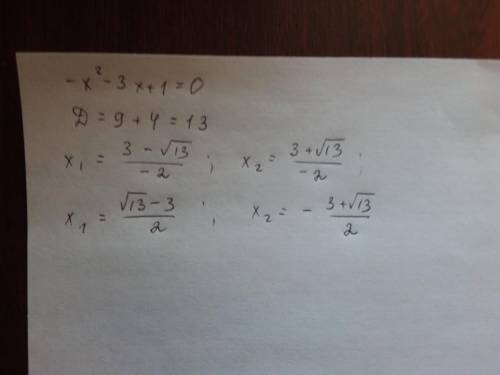 -x² - 3x + 1 = 0
D = 9 + 4 = 13
x₁ = (3 - √13)/(-2) ; x₂ = (3 + √13)/(-2) ;
x₁ = (√13 - 3)/2 ; x₂ = - (3 + √13)/2